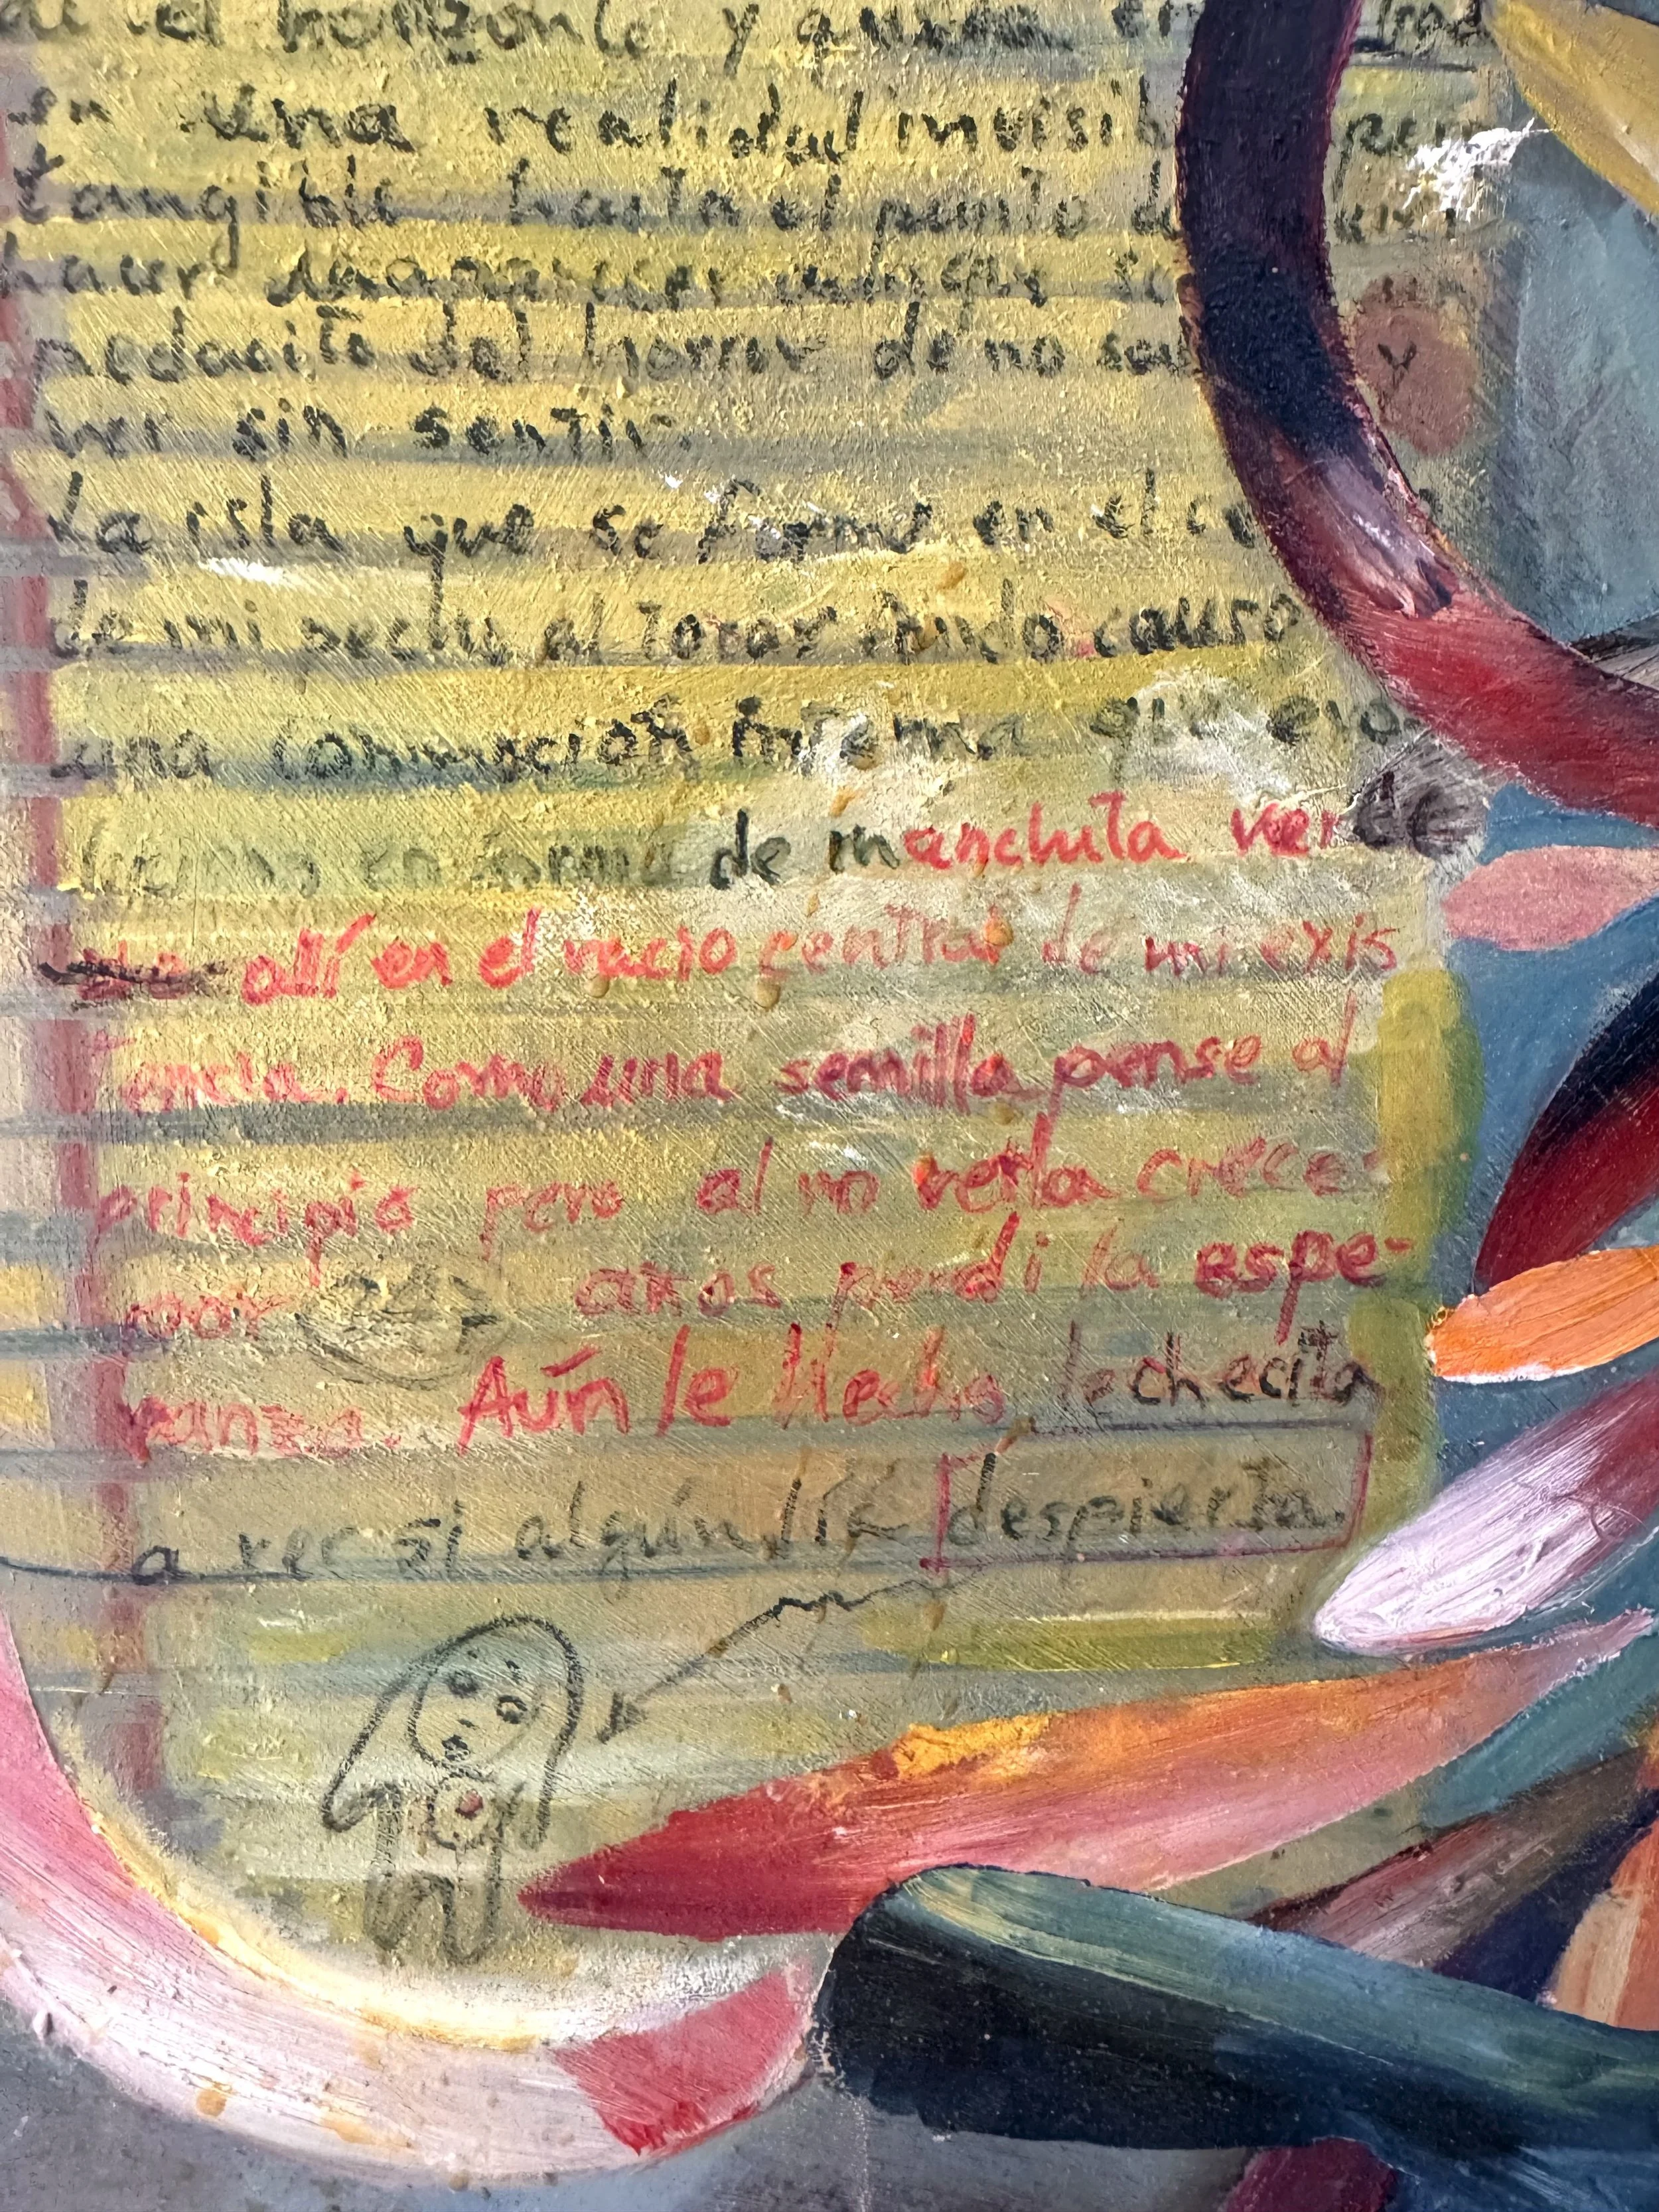 el horizonte y queda
en una realidad invisib pero
tangible hasta el punto de
hacer desaparecer
pedacito del horror de no y
ver sin sentir.
La isla que se forma en el ce
de mi pecho al tocar fondo causo
una conmoción interna que evo
en forma de manchita verde
allí en el vacio central de mi exis
tencia. Como una semilla pense al
principio pero al no verla crecer
por años perdi la espe-
ranza. Aún le hecho lechecita
a ver si algún día despierta.